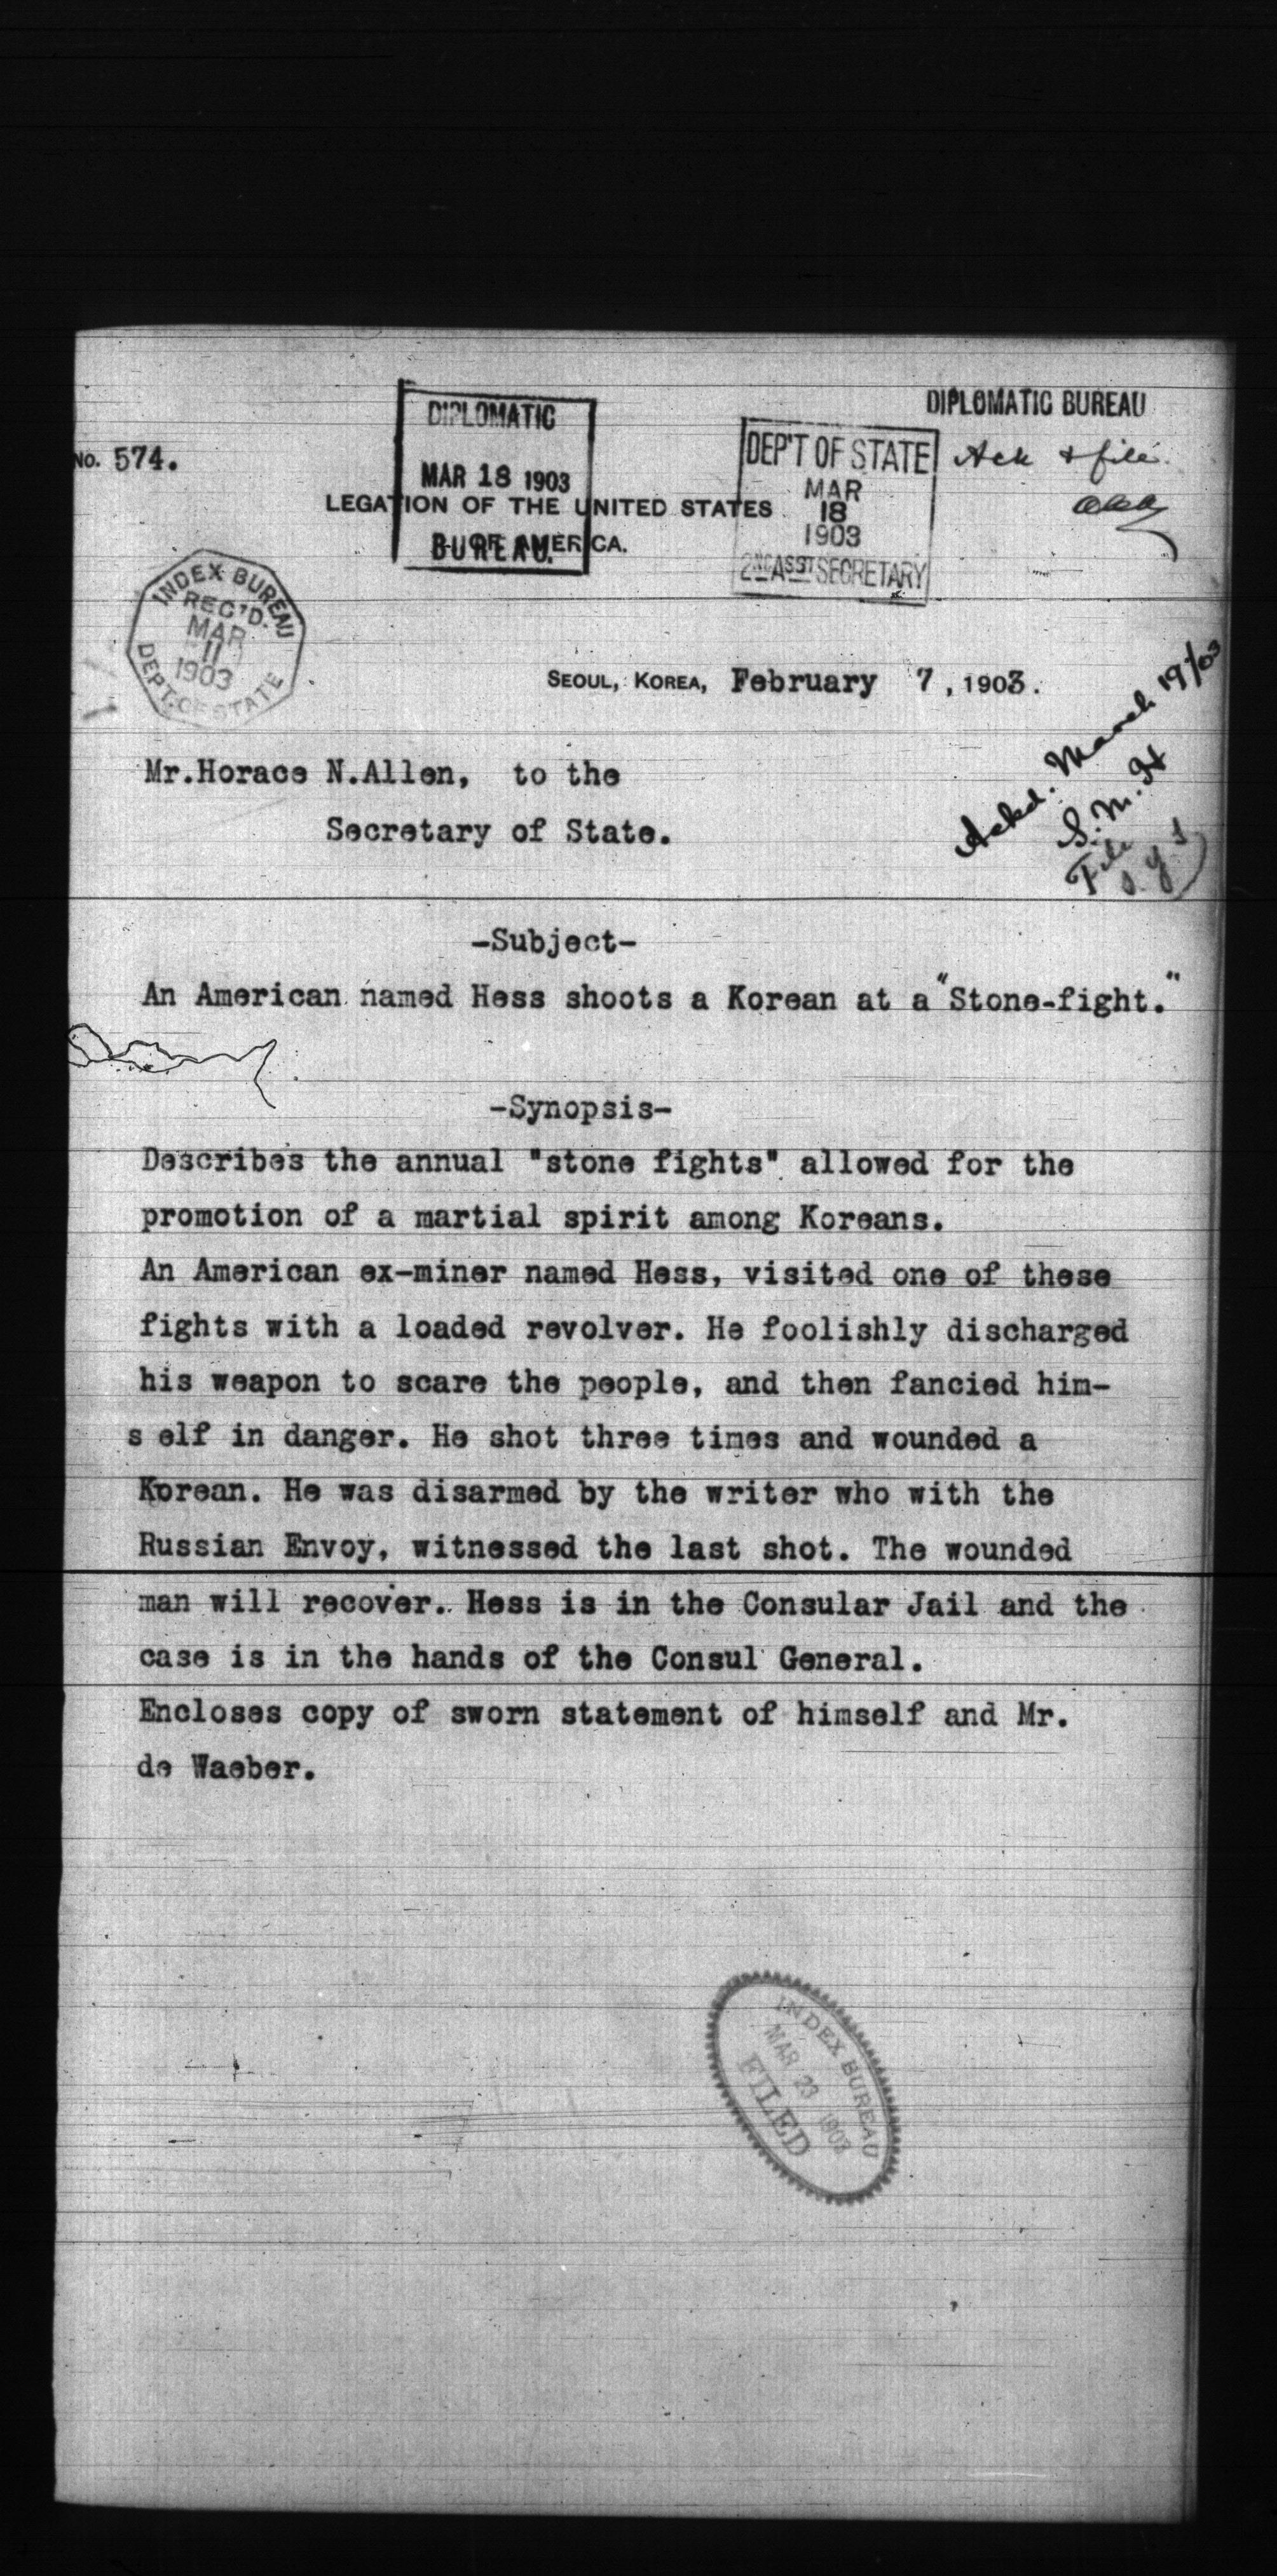 DIPLOMATIC BUREAU
DIPLOMATIC
MAR 18 1903
BUREAU.
DEP'T OF STATE
MAR
18
1903
2ND ASST SECRETARY
Ack & file.
No. 574.
LEGATION OF THE UNITED STATES
OF AMERICA.
INDEX BUREAU
REC'D.
MAR
11
1903
DEPT. OF STATE
SEOUL, KOREA, February 7, 1903.
Ackd. March 19/03
S.M.H
File
Mr.Horace N.Allen, to the
Secretary of State.
-Subject-
An American named Hess shoots a Korean at a "Stone-fight."
-Synopsis-
Describes the annual "stone fights" allowed for the
promotion of a martial spirit among Koreans.
An American ex-miner named Hess, visited one of these
fights with a loaded revolver. He foolishly discharged
his weapon to scare the people, and then fancied him-
s elf in danger. He shot three times and wounded a
Korean. He was disarmed by the writer who with the
Russian Envoy, witnessed the last shot. The wounded
man will recover. Hess is in the Consular Jail and the
case is in the hands of the Consul General.
Encloses copy of sworn statement of himself and Mr.
de Waeber.
INDEX BUREAU
MAR 23 1903
FILED